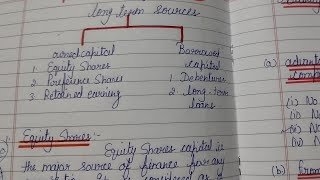 long term sources
owned capital
Borrowed capital
1 Equity Shares
2 Preference Shares
3 Retained earning
1 Debentures
2 Long-term loans
Equity Shares :-
Equity Shares capital is
the major source of finance for any
(a)
(i) No
(ii) No
(iii) No
(iv) N
(b)